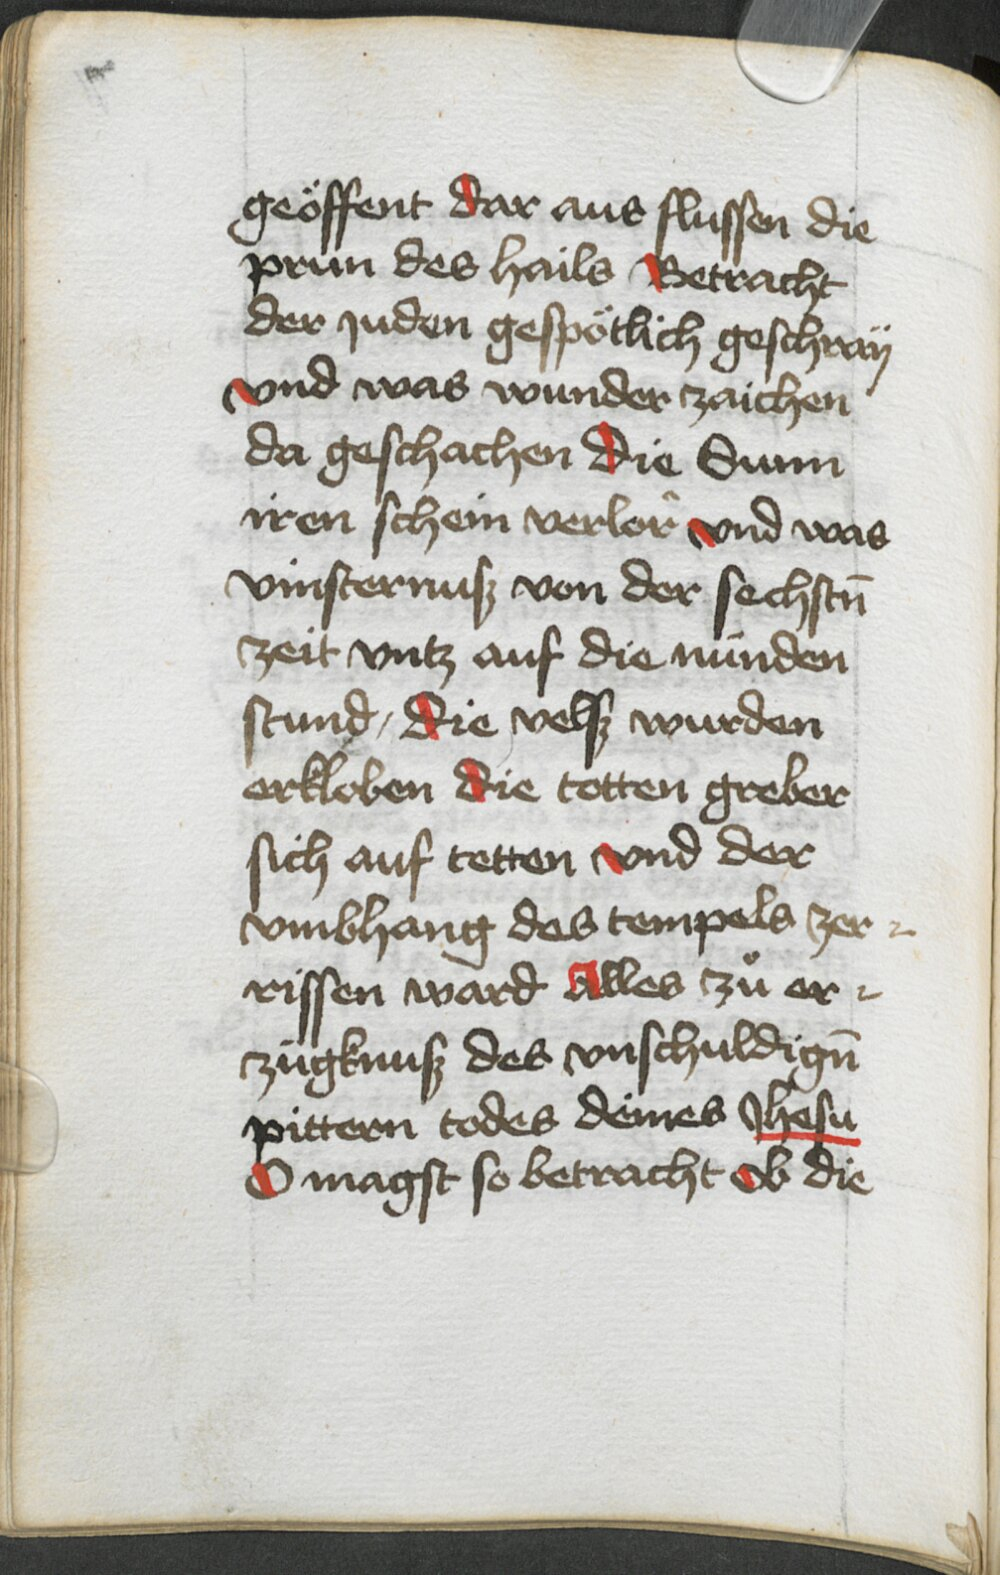 geöffent dar aus flussen die
prun des hails Betracht
der juden gespötlich geschraÿ
vnd was wunder zaichen
da geschachen Die Sunn
iren schein verlor̂ vnd was
vinsternusz von der sechstn̄
zeit vntz auf die nünden
stund / Die velsz wurden
erkloben Die totten greber
sich auf tetten vnd der
vmbhang des tempels zer
rissen ward Alles zů er
zügknusz des vnschuldign̄
pittern todes deines Jhesu
O magst so betracht Ob die